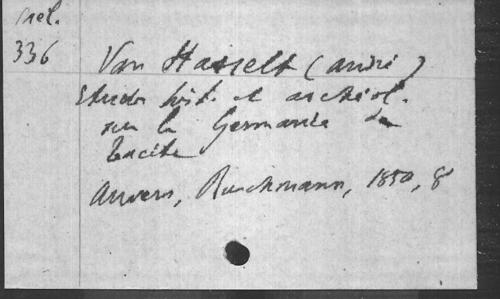 Mél.
336
Van Hasselt (André)
Etudes hist. et archéol.
sur la Germanie de
Tacite
Anvers, Buschmann, 1850, 8